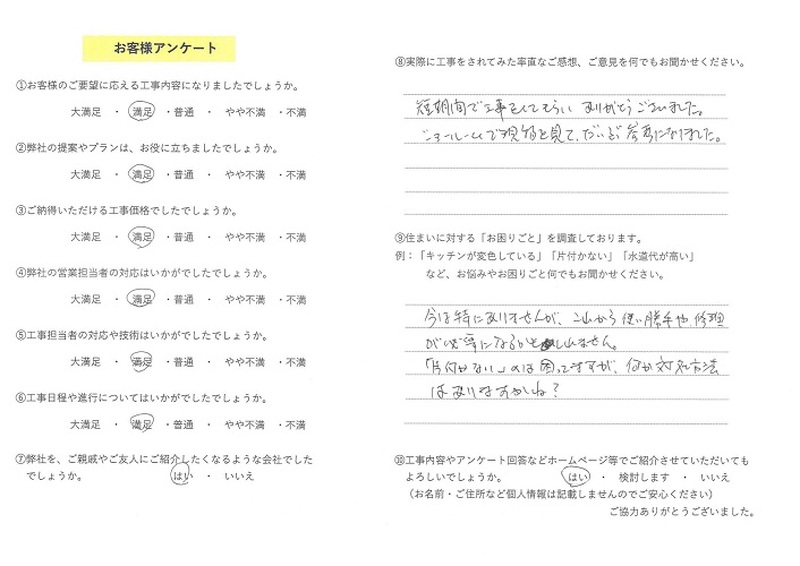 お客様アンケート
①お客様のご要望に応える工事内容になりましたでしょうか。
大満足 ・ 満足 ・普通 ・ やや不満 ・不満
②弊社の提案やプランは、お役に立ちましたでしょうか。
大満足 ・ 満足 ・普通 ・ やや不満 ・不満
③ご納得いただける工事価格でしたでしょうか。
大満足 ・ 満足 ・普通 ・ やや不満 ・不満
④弊社の営業担当者の対応はいかがでしたでしょうか。
大満足 ・ 満足 ・普通 ・ やや不満 ・不満
⑤工事担当者の対応や技術はいかがでしたでしょうか。
大満足 ・ 満足 ・普通 ・ やや不満 ・不満
⑥工事日程や進行についてはいかがでしたでしょうか。
大満足 ・ 満足 ・普通 ・ やや不満 ・不満
⑦弊社を、ご親戚やご友人にご紹介したくなるような会社でした
でしょうか。 はい ・ いいえ
⑧実際に工事をされてみた率直なご感想、ご意見を何でもお聞かせください。
短期間で工事をしてもらい ありがとうございました。
ショールームで現物を見て、だいぶ参考になりました。
⑨住まいに対する「お困りごと」を調査しております。
例：「キッチンが変色している」「片付かない」「水道代が高い」
など、お悩みやお困りごと何でもお聞かせください。
今は特にありませんが、これから使い勝手や修理
が必要になるかもしれません。
「片付かない」のは困ってますが、何か対処方法
はありますかね？
⑩工事内容やアンケート回答などホームページ等でご紹介させていただいても
よろしいでしょうか。 はい ・ 検討します ・ いいえ
（お名前・ご住所など個人情報は記載しませんのでご安心ください）
ご協力ありがとうございました。